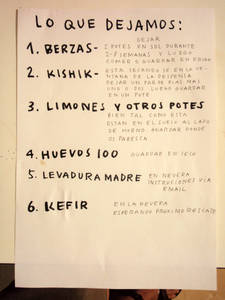 LO QUE DEJAMOS:
1. BERZAS- DEJAR
2 POTES EN SOL DURANTE
SEMANAS Y LUEGO
COMER O GUARDAR EN FRIGO
2. KISHIK- ESTÁ SECANDOSE EN LA VE
NTANA DE LA DESPENSA
DEJAR UN PAR DE DIAS MAS
UNO O DOS LUEGO GUARDAR
EN UN POTE
3. LIMONES Y OTROS POTES
BIEN TAL COMO ESTA
ESTAN EN EL SUELO AL LADO
DE HORNO GUARDAR DONDE
OS PARESCA
4. HUEVOS 100 GUARDAR EN SECO
5. LEVADURA MADRE EN NEVERA
INSTRUCIONES VIA
EMAIL
6. KEFIR EN LA NEVERA
ESPERANDO PROXIMO RESCATE